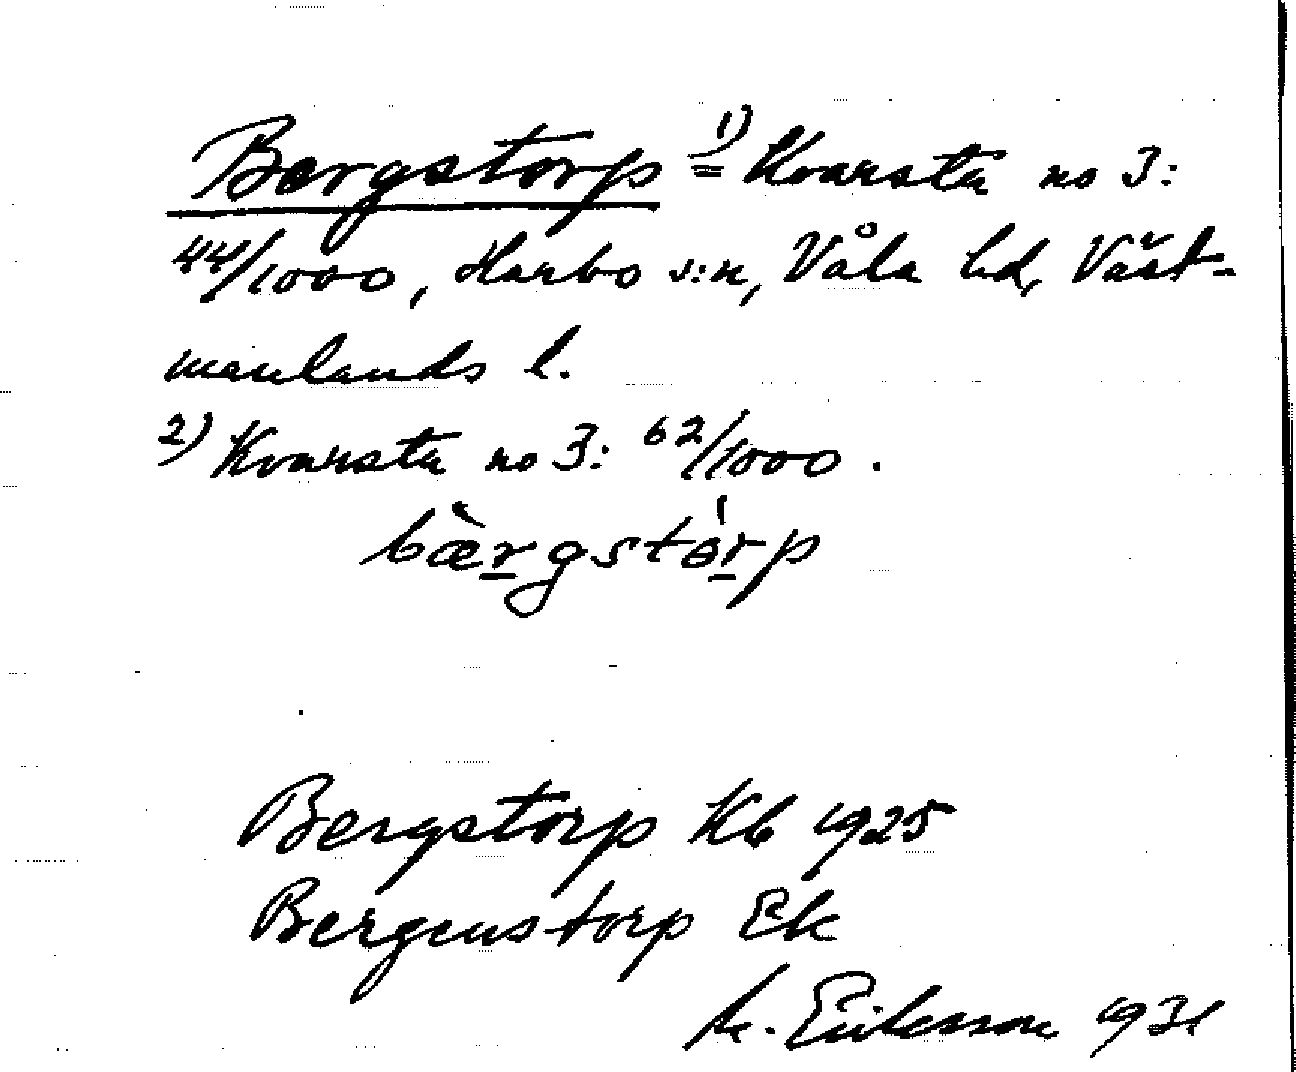 Bergstorp 1) = Kvarsta no 3:
44/1000, Harbo s:n, Våla hd, Väst-
manlands l.
2) Kvarsta no 3: 62/1000.
bæ̀rgstòrp
Bergstorp Kb 1925
Bergenstorp Ek
M. Eriksson 1931